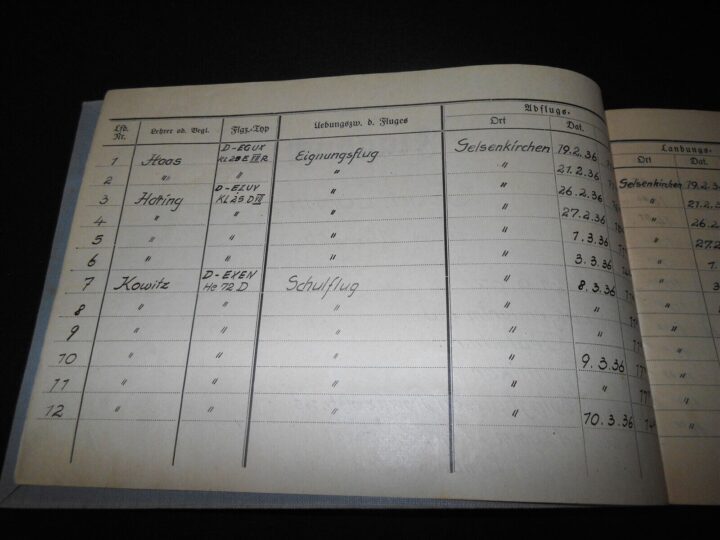 Abflugs-
Lfd. Nr. Lehrer od. Begl. Flgz.-Typ Uebungszw. d. Fluges Ort Dat.
Landungs-
Ort Dat.
D-EGUX
1 Haas KL 25 E VII R Eignungsflug Gelsenkirchen 19.2.36 Gelsenkirchen 19.2.
2 " " " " 21.2.36 " 21.2.
D-ELUY
3 Hoting KL 25 D VII " " 26.2.36 " 26.2
4 " " " " 27.2.36 " 27.2
5 " " " " 1.3.36 " 1.
6 " " " " 3.3.36 "
D-EXEN
7 Kowitz He 72 D Schulflug " 8.3.36 "
8 " " " " " "
9 " " " " " "
10 " " " " 9.3.36 "
11 " " " " " "
12 " " " " 10.3.36 "